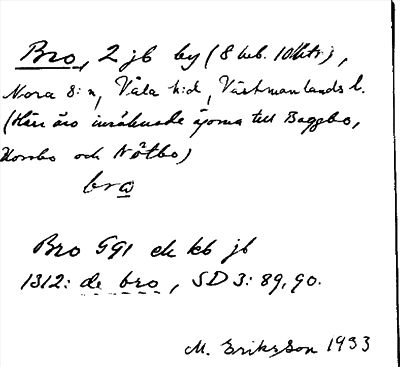 Bro, 2 jb by (8 heb. 10 lktr),
Nora s:n, Våla h:d, Västmanlands l.
(Här äro inräknade ägorna till Baggbo,
Horrbo och Nötbo)
bro
Bro GGI ek kb jb
1312: de bro, SD 3: 89, 90.
M. Eriksson 1933